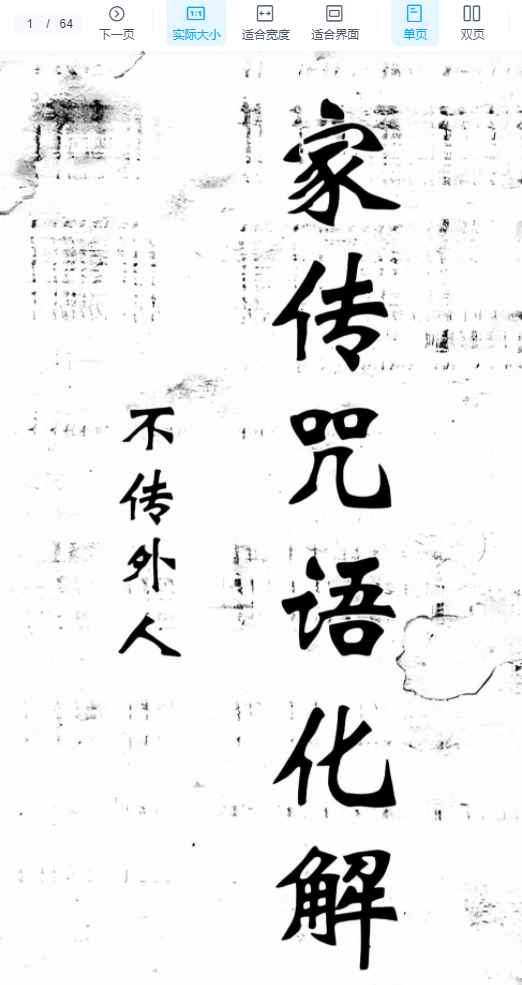 1 / 64
下一页
实际大小
适合宽度
适合界面
单页
双页
家传咒语化解
不传外人